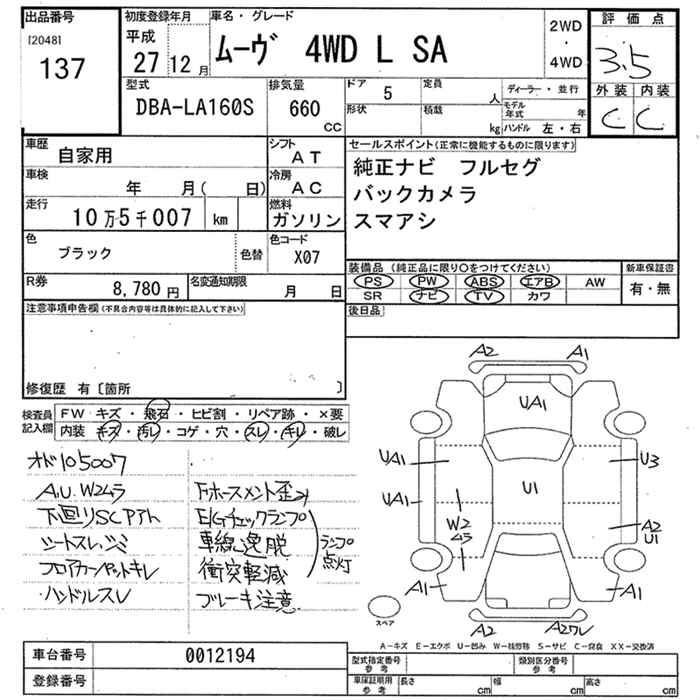 出品番号
[2048]
137
初度登録年月
平成
27 12 月
車名・グレード
ムーヴ 4WD L SA
2WD
・
4WD
評価点
3.5
外装 内装
C C
型式
DBA-LA160S
排気量
660
CC
ドア 5
定員 人
形状
積載 kg
ディーラー・並行
モデル年式 年
ハンドル 左・右
車歴
自家用
シフト
AT
車検
年 月( 日)
冷房
AC
走行
10万5千007 km
燃料
ガソリン
色
ブラック
色替
色コード
X07
R券
8,780 円
名変通知期限
月 日
セールスポイント(正常に機能するものに限ります)
純正ナビ フルセグ
バックカメラ
スマアシ
装備品 (純正品に限り○をつけてください)
PS PW ABS エアB AW
SR ナビ TV カワ
新車保証書
有・無
後日品
注意事項申告欄(不具合内容等は具体的に記入して下さい)
修復歴 有〔箇所 〕
検査員記入欄
FW キズ・飛石・ヒビ割・リペア跡・×要
内装 キズ・汚レ・コゲ・穴・スレ・キレ・破レ
オド105007
A.U.W2ムラ
下回りSCアト
シートスレ、シミ
フロアカーペットキレ
ハンドルスレ
E/Gチェックランプ
車線逸脱
衝突軽減
ブレーキ注意
ランプ点灯
A2 A1
UA1
UA1 U3
U1
UA1
W2ムラ
A2
U1
A1 A1
A2 A2ワレ
スペア
A-キズ E-エクボ U-凹み W-補修跡 S-サビ C-腐食 XX-交換済
車台番号 0012194
登録番号
型式指定番号 参考
類別区分番号 参考
車庫証明用 参考
長さ cm
幅 cm
高さ cm